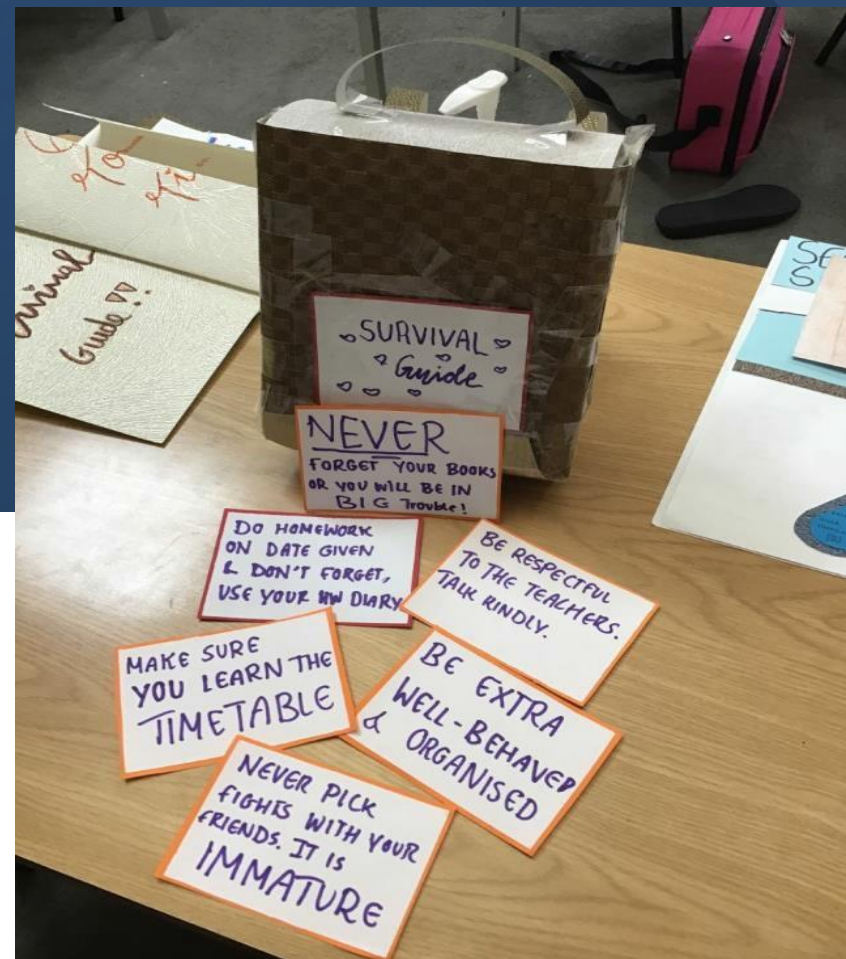 SURVIVAL
Guide
NEVER
FORGET YOUR BOOKS
OR YOU WILL BE IN
BIG Trouble!
DO HOMEWORK
ON DATE GIVEN
& DON'T FORGET,
USE YOUR HW DIARY
BE RESPECTFUL
TO THE TEACHERS.
TALK KINDLY.
MAKE SURE
YOU LEARN THE
TIMETABLE
BE EXTRA
WELL-BEHAVED
& ORGANISED
NEVER PICK
FIGHTS WITH YOUR
FRIENDS. IT IS
IMMATURE
Guide !!